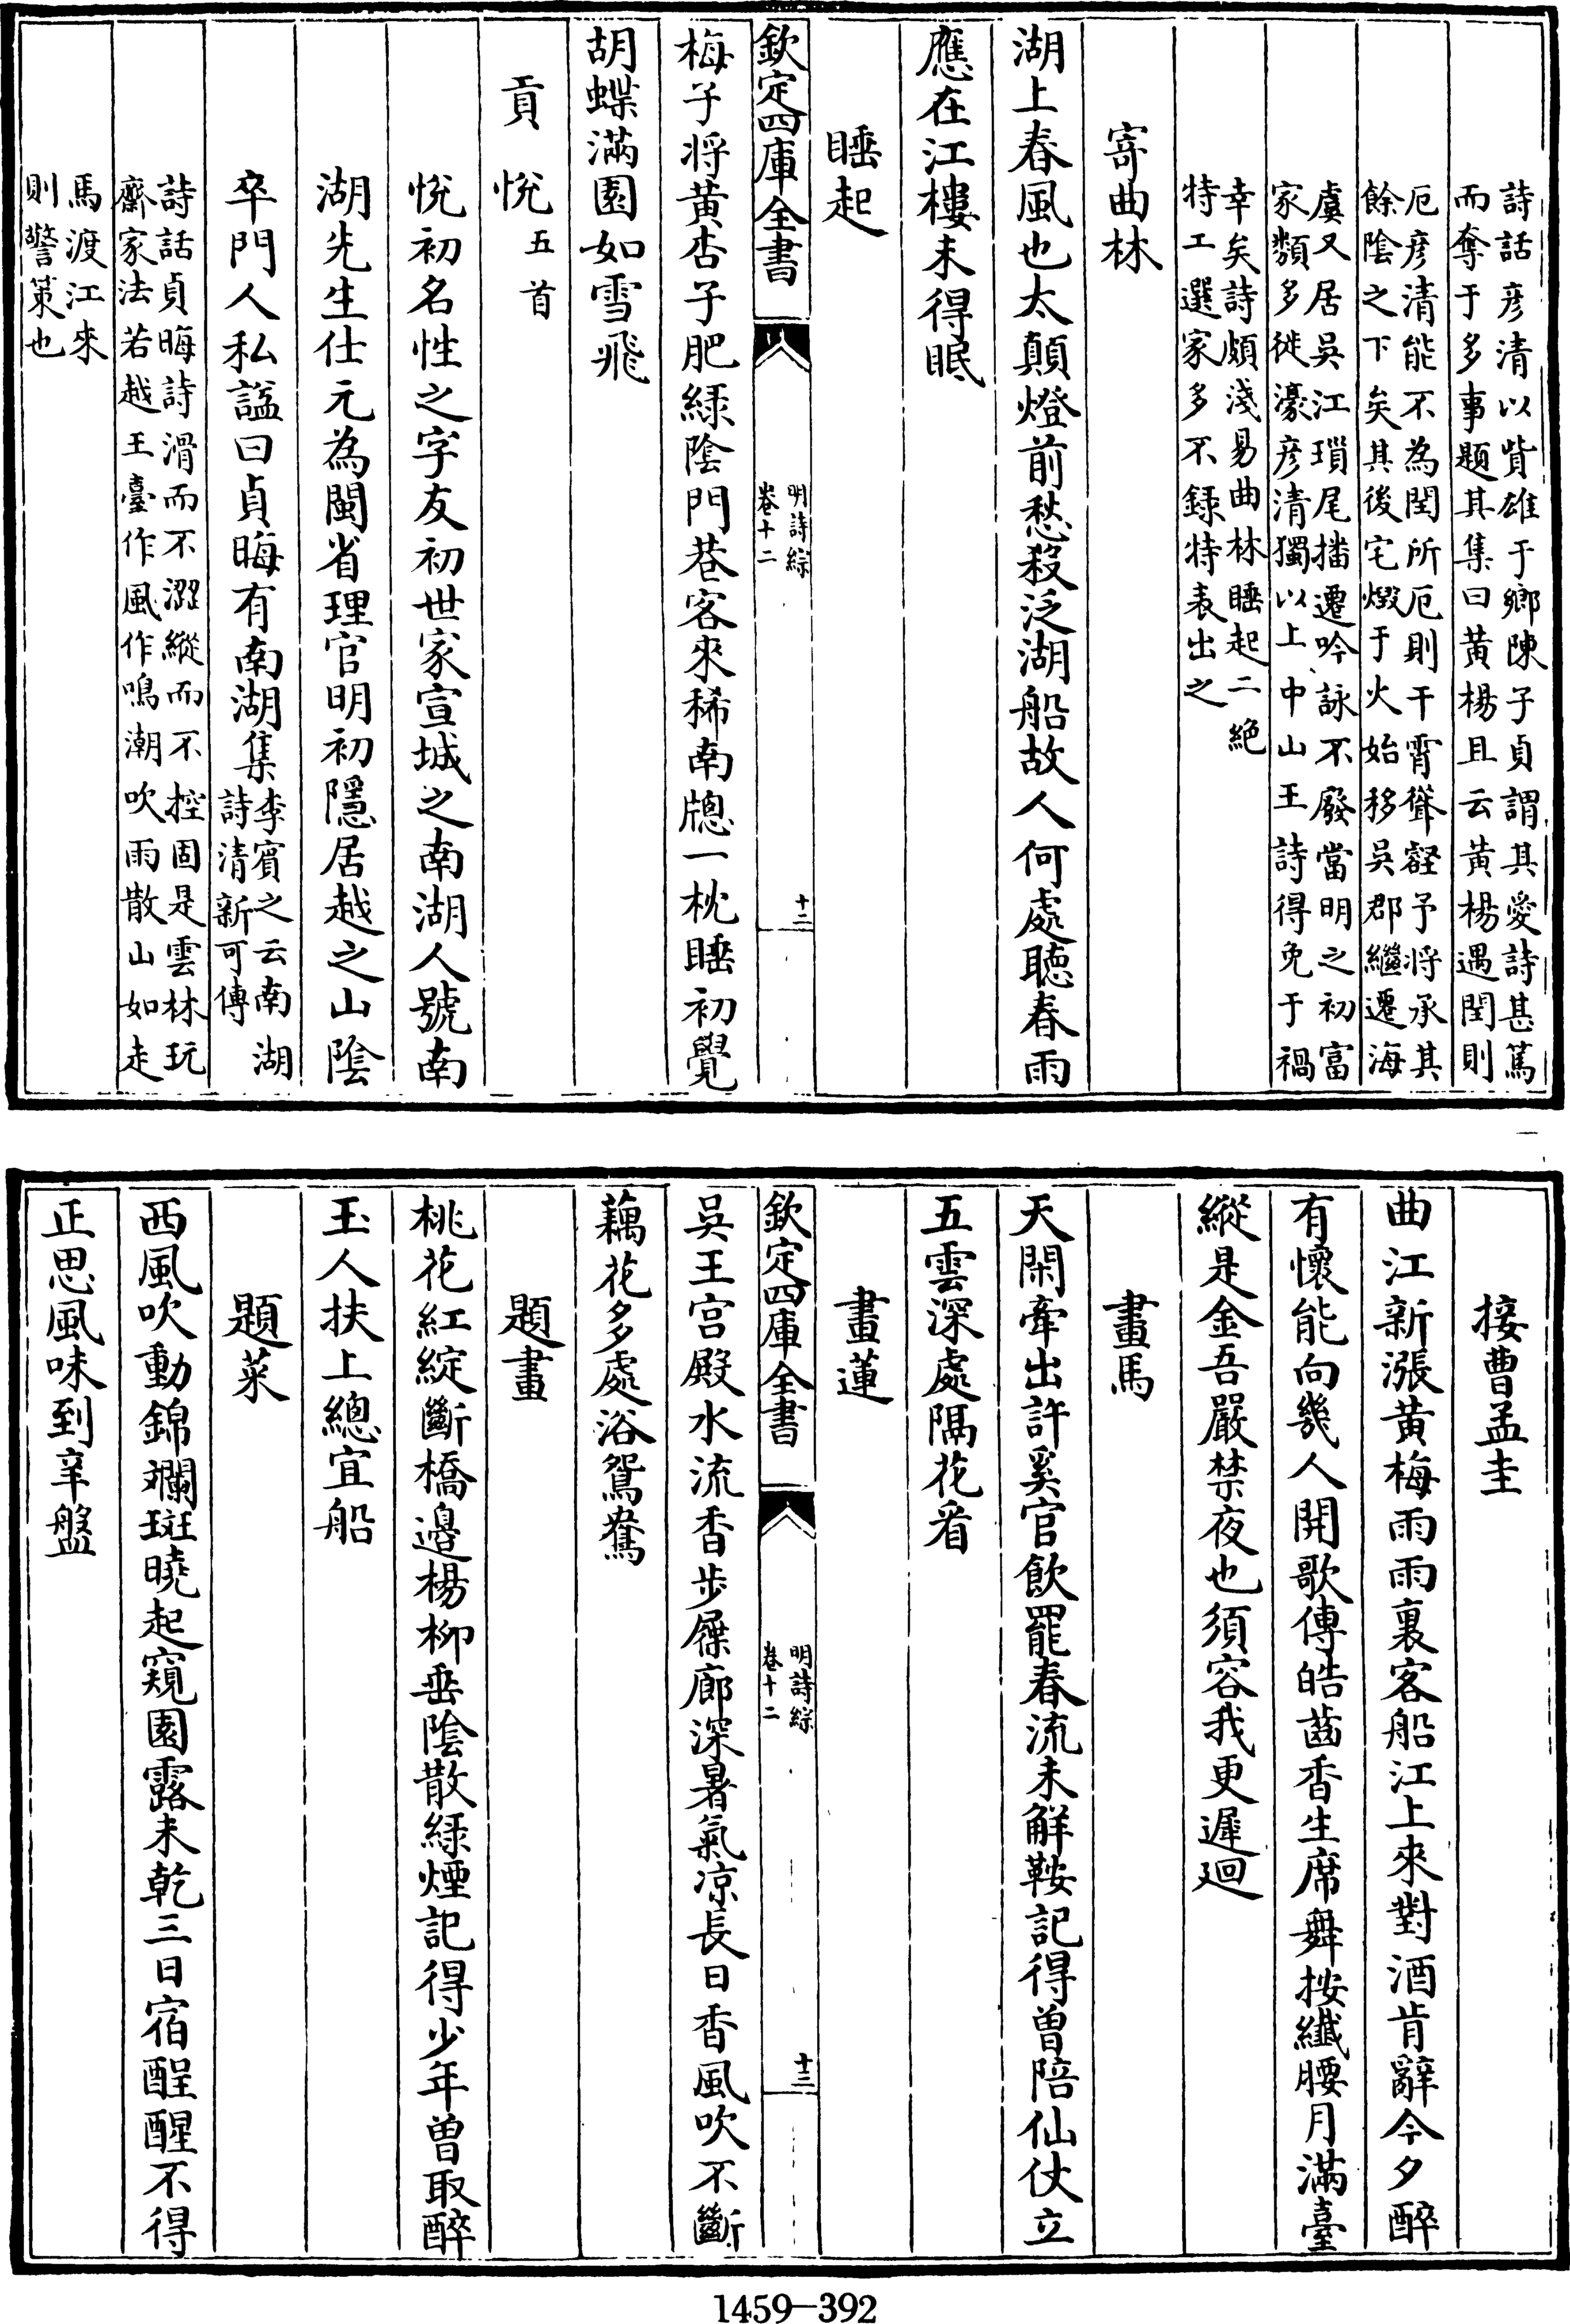 詩話彦清以貲雄于鄉陳子貞謂其愛詩甚篤
而奪于多事題其集曰黃楊且云黃楊遇閏則
厄彦清能不為閏所厄則干霄聳壑予將承其
餘陰之下矣其後宅燬于火始移吳郡繼遷海
虞又居吳江瑣尾播遷吟詠不廢當明之初富
家類多徙濠彦清獨以上中山王詩得免于禍
幸矣詩頗淺易曲林睡起二絶
特工選家多不録特表出之
寄曲林
湖上春風也太顛燈前愁殺泛湖船故人何處聴春雨
應在江樓未得眠
睡起
欽定四庫全書
明詩綜
卷十二
十二
梅子将黄杏子肥緑陰門巷客來稀南牕一枕睡初覺
胡蝶滿園如雪飛
貢悅五首
悅初名性之字友初世家宣城之南湖人號南
湖先生仕元為閩省理官明初隱居越之山陰
卒門人私諡曰貞晦有南湖集
李賓之云南湖
詩清新可傳
詩話貞晦詩滑而不澀縱而不控固是雲林玩
齋家法若越王臺作風作鳴潮吹雨散山如走
馬渡江來
則警策也
接曹孟圭
曲江新漲黄梅雨雨裏客船江上來對酒肯辭今夕醉
有懷能向幾人開歌傳皓齒香生席舞按纖腰月滿臺
縱是金吾嚴禁夜也須容我更遲迴
畫馬
天閑牽出許奚官飲罷春流未解鞍記得曾陪仙仗立
五雲深處隔花看
畫蓮
欽定四庫全書
明詩綜
卷十二
十三
吳王宫殿水流香步屧廊深暑氣凉長日香風吹不斷
藕花多處浴鴛鴦
題畫
桃花紅綻斷橋邊楊柳垂陰散緑煙記得少年曾取醉
玉人扶上總宜船
題菜
西風吹動錦斕斑曉起窺園露未乾三日宿酲醒不得
正思風味到辛盤
1459—392